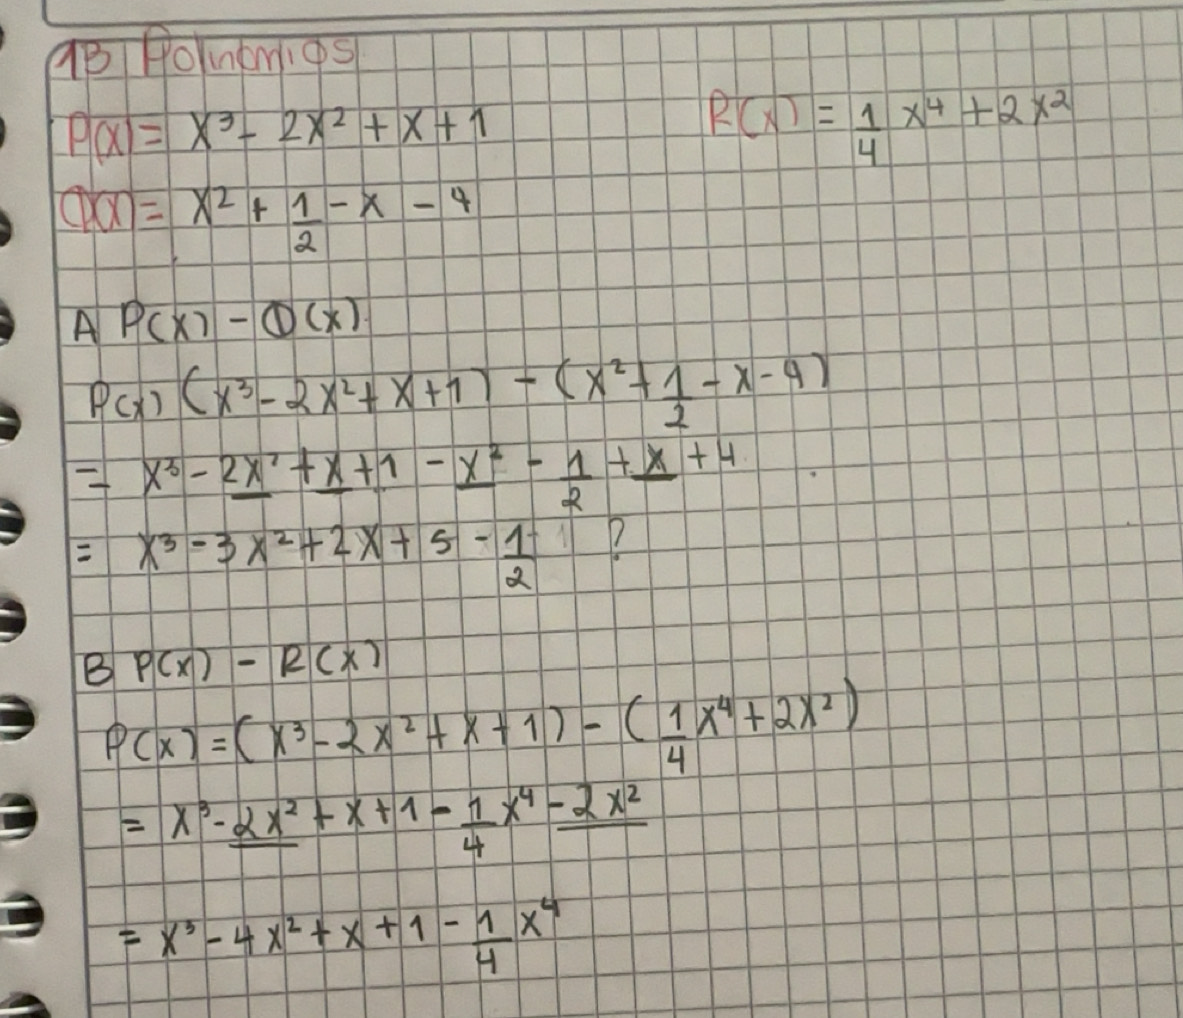 13 Polinomios
P(x) = x³ - 2x² + x + 1
R(x) = 1/4 x⁴ + 2x²
Q(x) = x² + 1/2 - x - 4
A P(x) - Q(x)
P(x) (x³ - 2x² + x + 1) - (x² + 1/2 - x - 4)
= x³ - 2x² + x + 1 - x² - 1/2 + x + 4
= x³ - 3x² + 2x + 5 - 1/2 ?
B P(x) - R(x)
P(x) = (x³ - 2x² + x + 1) - (1/4 x⁴ + 2x²)
= x³ - 2x² + x + 1 - 1/4 x⁴ - 2x²
= x³ - 4x² + x + 1 - 1/4 x⁴